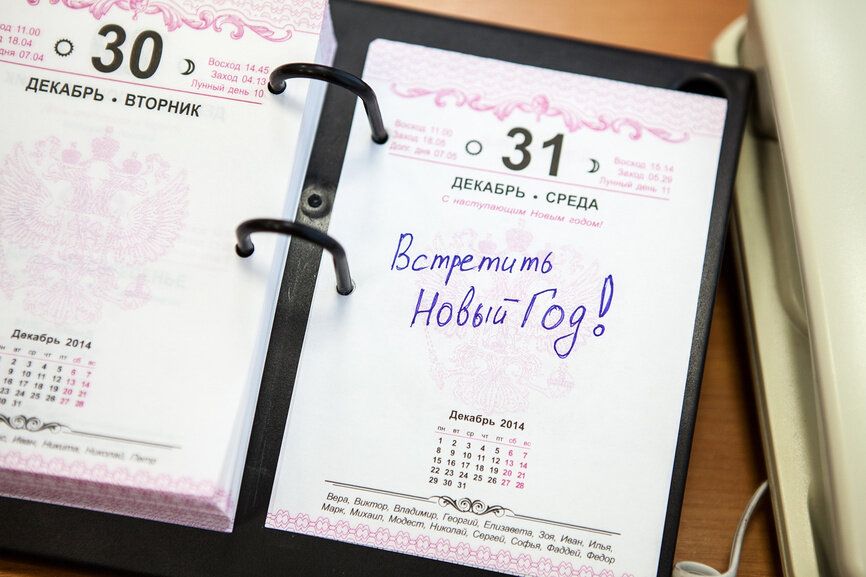 30
Восход 14.45
Заход 04.13
Лунный день 10
ДЕКАБРЬ • ВТОРНИК
Декабрь 2014
пн вт ср чт пт сб вс
1 2 3 4 5 6 7
8 9 10 11 12 13 14
15 16 17 18 19 20 21
22 23 24 25 26 27 28
29 30 31
Иван, Никита, Николай, Петр
Восход 11.00
Заход 18.05
Долг. дня 07.05
31
Восход 15.14
Заход 05.29
Лунный день 11
ДЕКАБРЬ • СРЕДА
С наступающим Новым годом!
Встретить
Новый Год!
Декабрь 2014
пн вт ср чт пт сб вс
1 2 3 4 5 6 7
8 9 10 11 12 13 14
15 16 17 18 19 20 21
22 23 24 25 26 27 28
29 30 31
Вера, Виктор, Владимир, Георгий, Елизавета, Зоя, Иван, Илья,
Марк, Михаил, Модест, Николай, Сергей, Софья, Фаддей, Федор